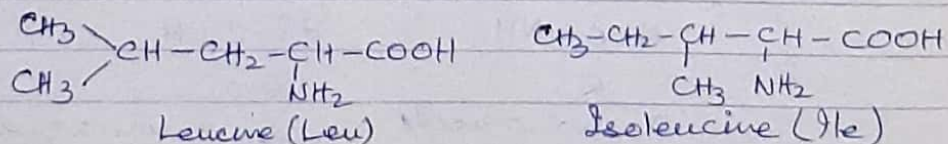 CH3
CH-CH2-CH-COOH
CH3
NH2
Leucine (Leu)
CH3-CH2-CH-CH-COOH
CH3 NH2
Isoleucine (Ile)